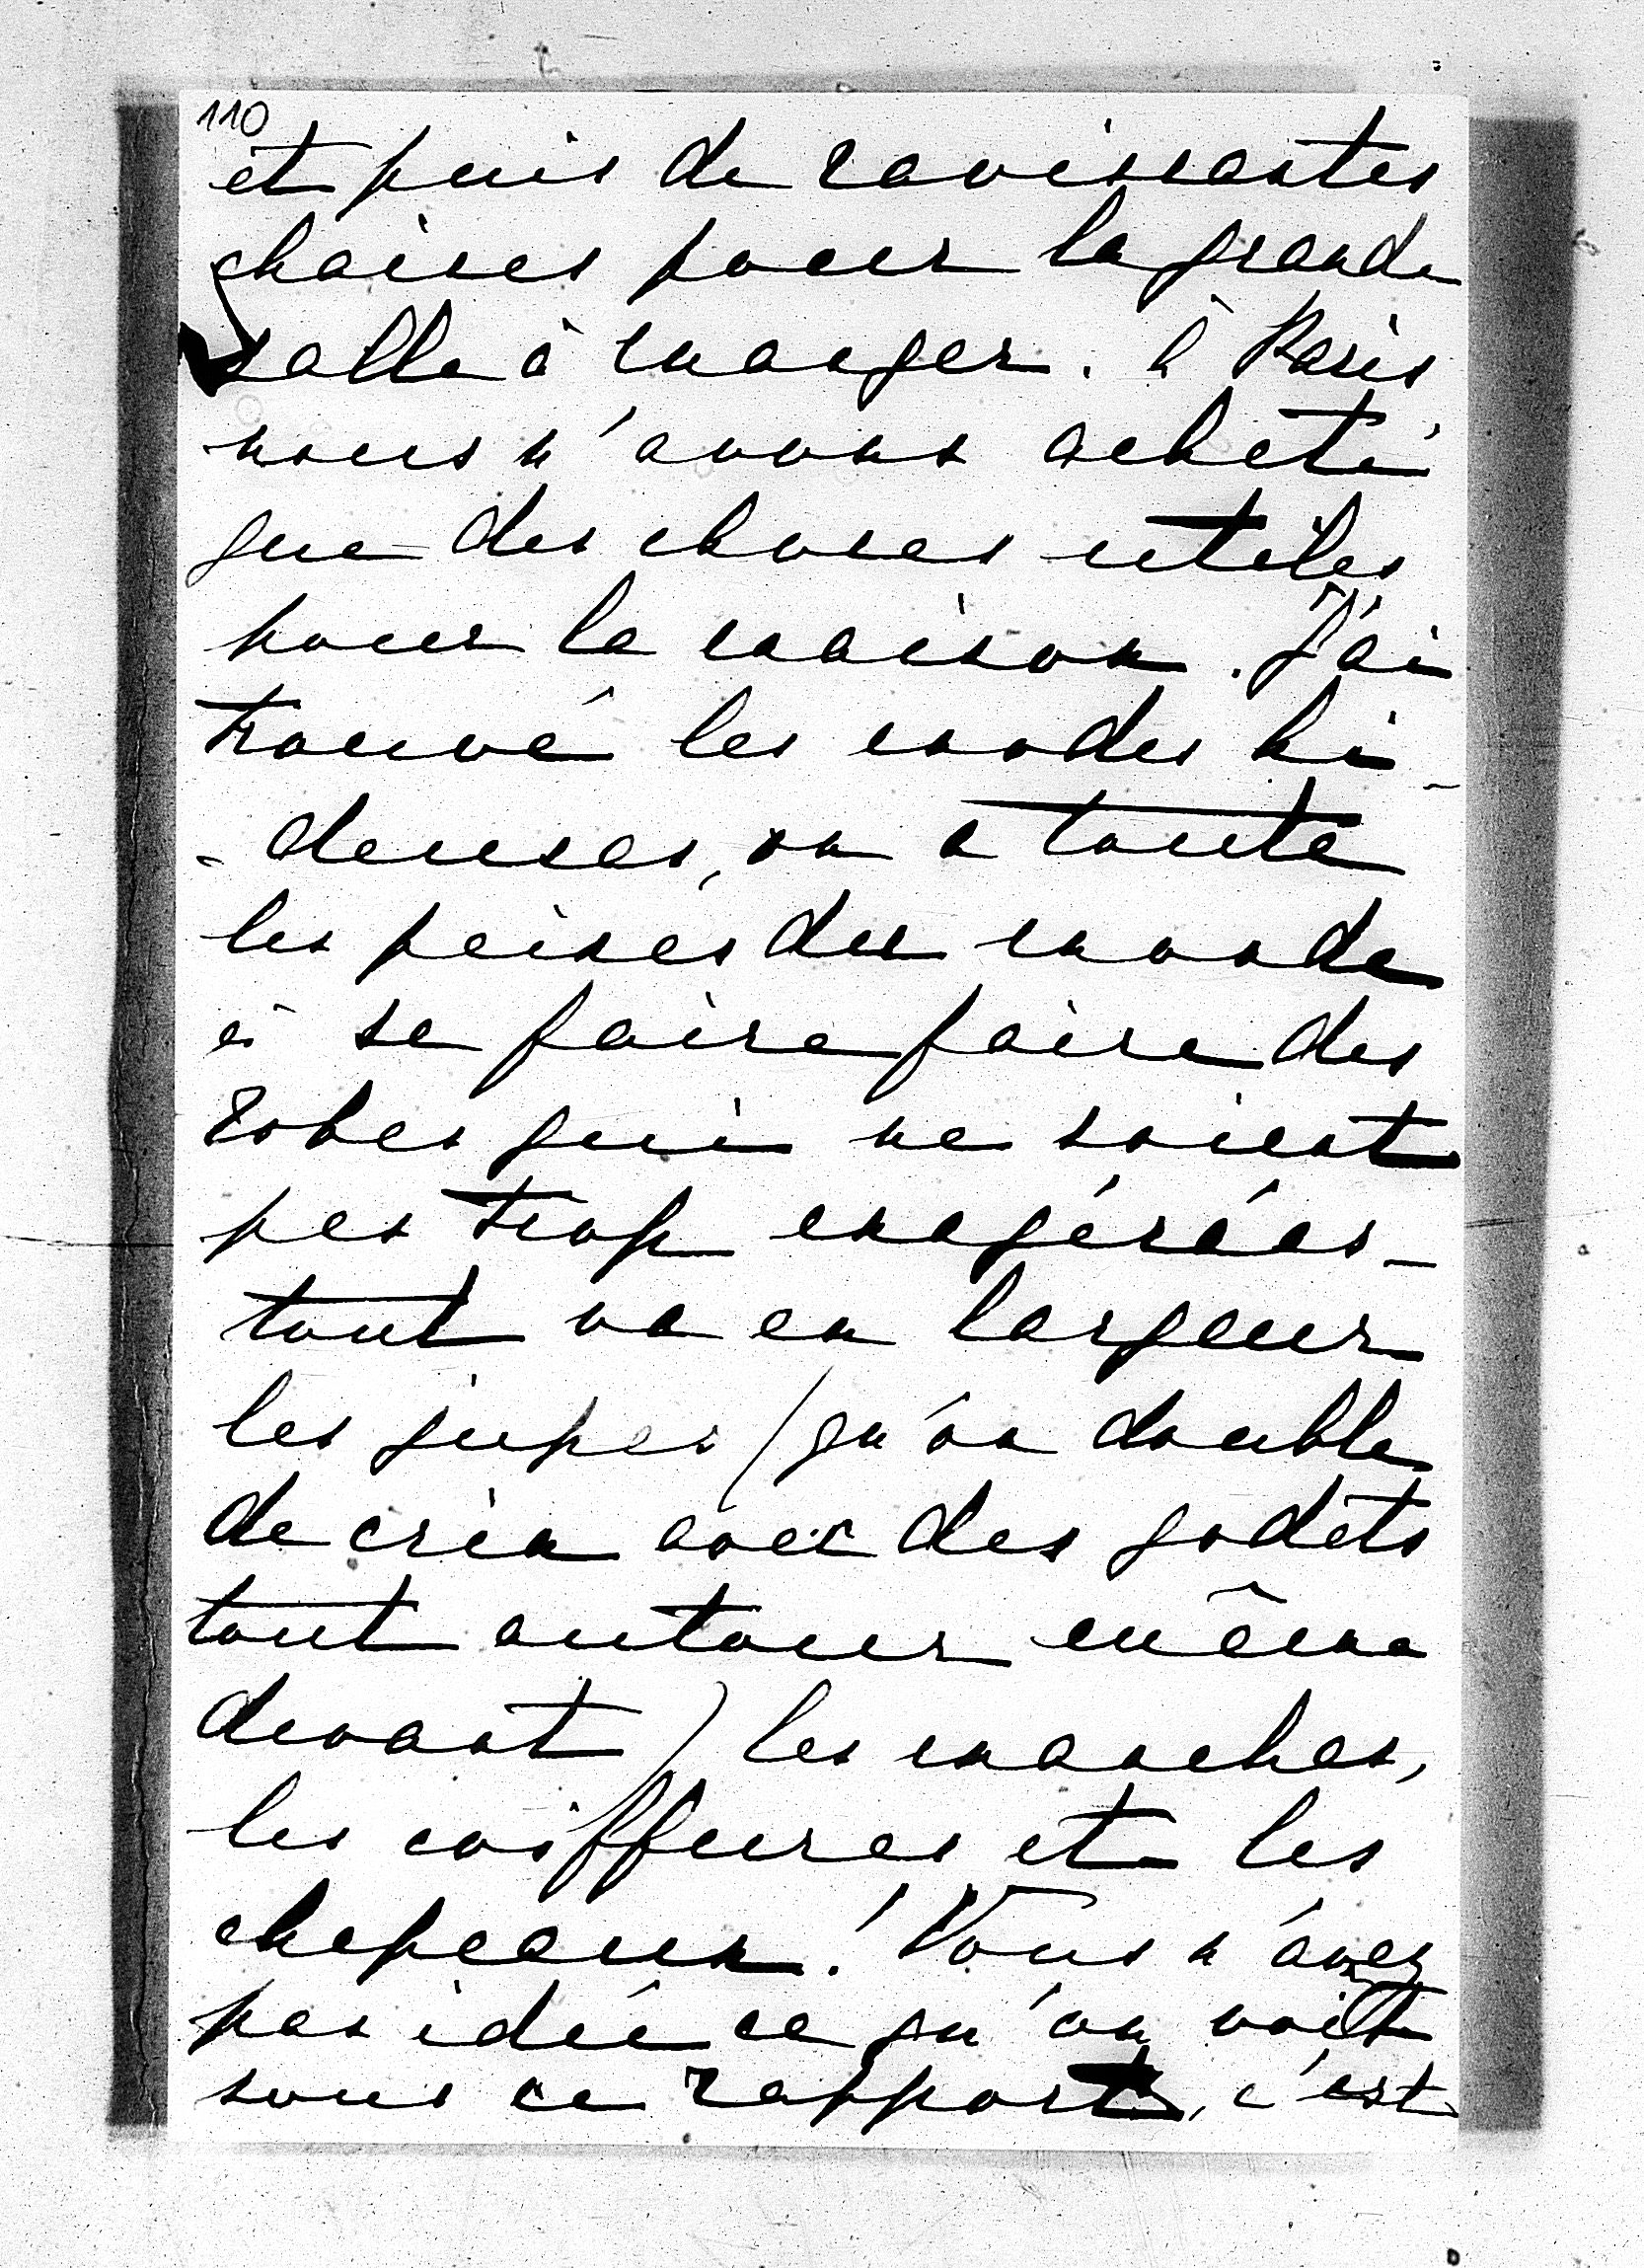 110
et puis de ravissantes
chaises pour la grande
salle à manger. à Paris
nous n'avons acheté
que des choses utiles
pour la maison. J'ai
trouvé les modes hi-
-deuses, on a toute
les peines du monde
à se faire faire des
robes qui ne soient
pas trop exagérées_
tout va en largeur
les jupes (qu'on double
de crin avec des godets
tout autour même
devant) les manches,
les coiffures et les
chapeaux! Vous n'avez
pas idée ce qu'on voit
sous ce rapport, c'est